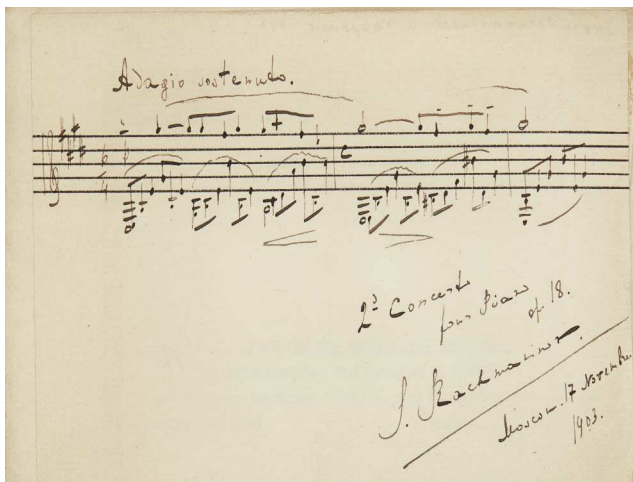 Adagio sostenuto.
2d Concerto
pour Piano
op. 18.
S. Rachmaninow.
Moscou. 17 Novembre
1903.